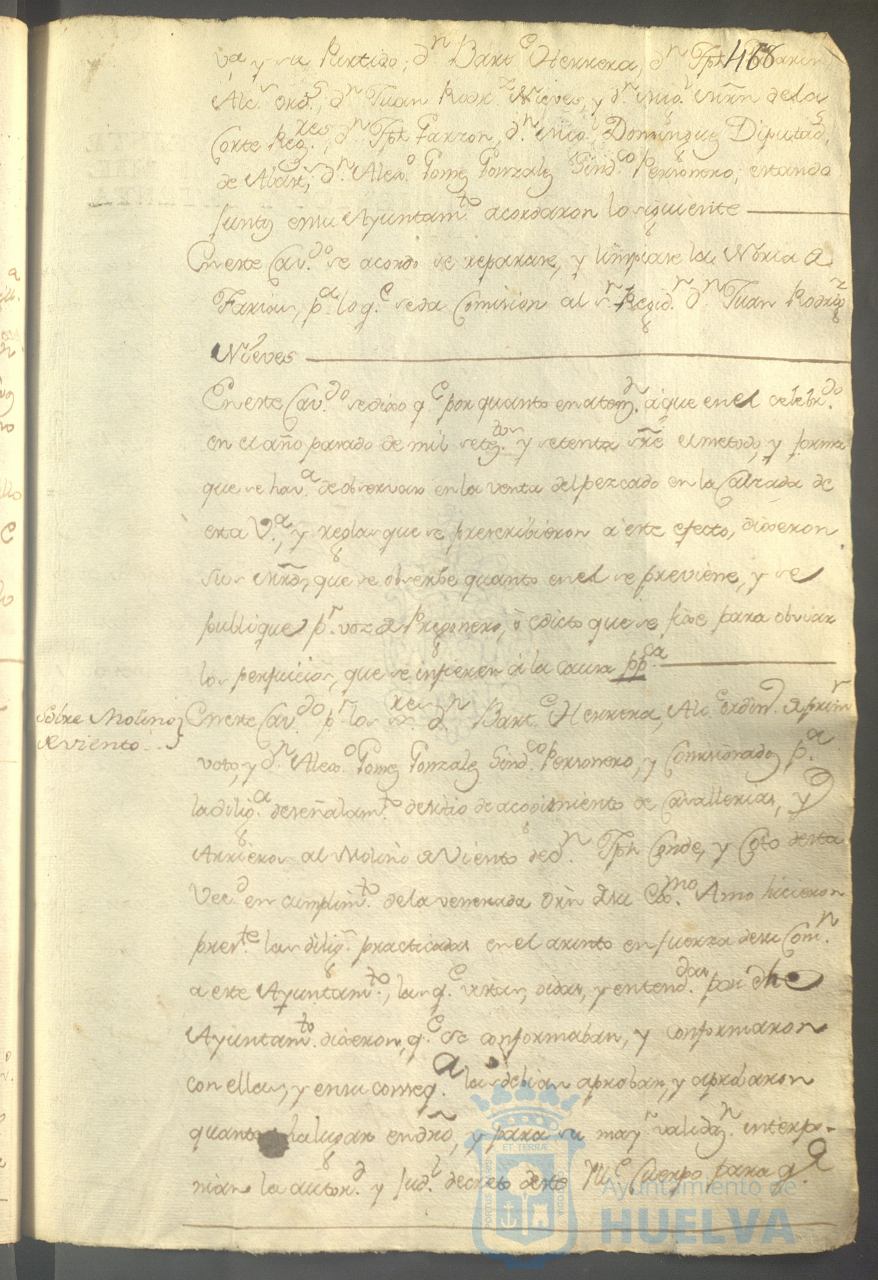 468
va y su Partido; dn Bart.e Herrera, dn Jph Garzon
Alc.s ord.s, dn Juan Rodr.z Nieves, y dn Nico.l Mrñ de la
Corte Reg.res, dn Jph Garzon, dn Nico.l Dominguez Diputad.s
de Abast.s, dn Alexo Gomez Gonzalez Sind.co Personero, estando
juntos en su Ayuntam.to acordaron lo siguiente
En este Cav.do se acordo se reparase, y limpiase la Noria de
p.a lo q.e se da Comision al s.r Regid.r dn Juan Rodrig.z
Nieves
En este Cav.do se dixo q.e por quanto en aten.n á que en el celebr.do
en el año pasado de mil setez.tos y setenta sre el metodo, y forma
que se hav.a de observar en la venta del pezcado en la Calzada de
esta V.a, y reglas que se prescribieron á este efecto, dixeron
sus mrds, que se observe quanto en el se previene, y se
publique p.r voz de Pregonero, ó edicto que se fixe para obviar
los perjuicios, que se infieren á la causa pp.ca
Sobre Molino
de viento
En este Cav.do p.r los s.res dn Bart.e Herrera, Alc.e ordin.o de prim.r
voto, y dn Alexo Gomez Gonzalez Sind.co Personero, y Comisionados p.a
la dilig.a de señalam.to de sitio de acogimiento de Cavallerias, y
Arrieros al Molino de Viento de dn Jph Conde, y Coto desta
Vec.d en cumplim.to de la venerada orn de su Exmo Amo hicieron
pres.te las dilig.s practicadas en el asunto en fuerza de su Com.n
a este Ayuntam.to, las q.e vistas, oidas, y entend.das por dho
Ayuntam.to dixeron, q.e se conformaban, y conformaron
con ellas, y en su conseq.a las debian aprobar, y aprobaron
quanto ha lugar en dro, y para su may.r validaz.n interpo-
nian la autor.d y jud.l decreto deste Il.e Cuerpo para q.e
Ayuntamiento de
HUELVA